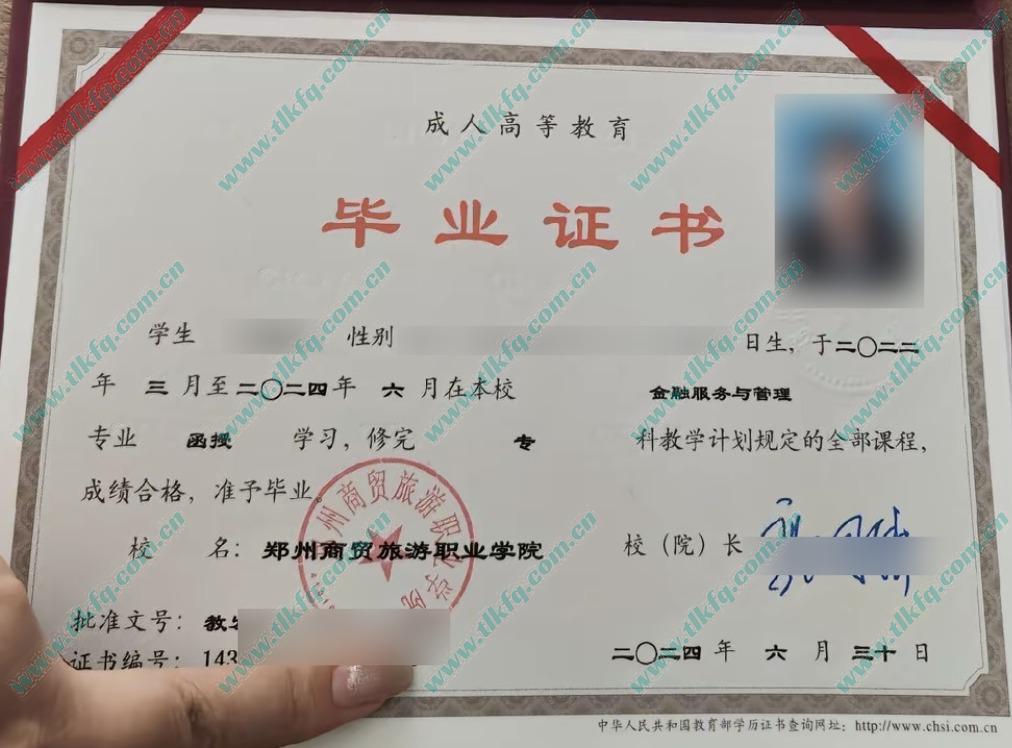 成人高等教育
毕业证书
学生 性别 日生，于二〇二二
年 三 月至二〇二四年 六 月在本校 金融服务与管理
专业 函授 学习，修完 专 科教学计划规定的全部课程，
成绩合格，准予毕业。
校 名：郑州商贸旅游职业学院 校（院）长
批准文号：教
证书编号：143
二〇二四 年 六 月 三十 日
中华人民共和国教育部学历证书查询网址：http://www.chsi.com.cn
郑州商贸旅游职业学院
www.tlkfq.com.cn